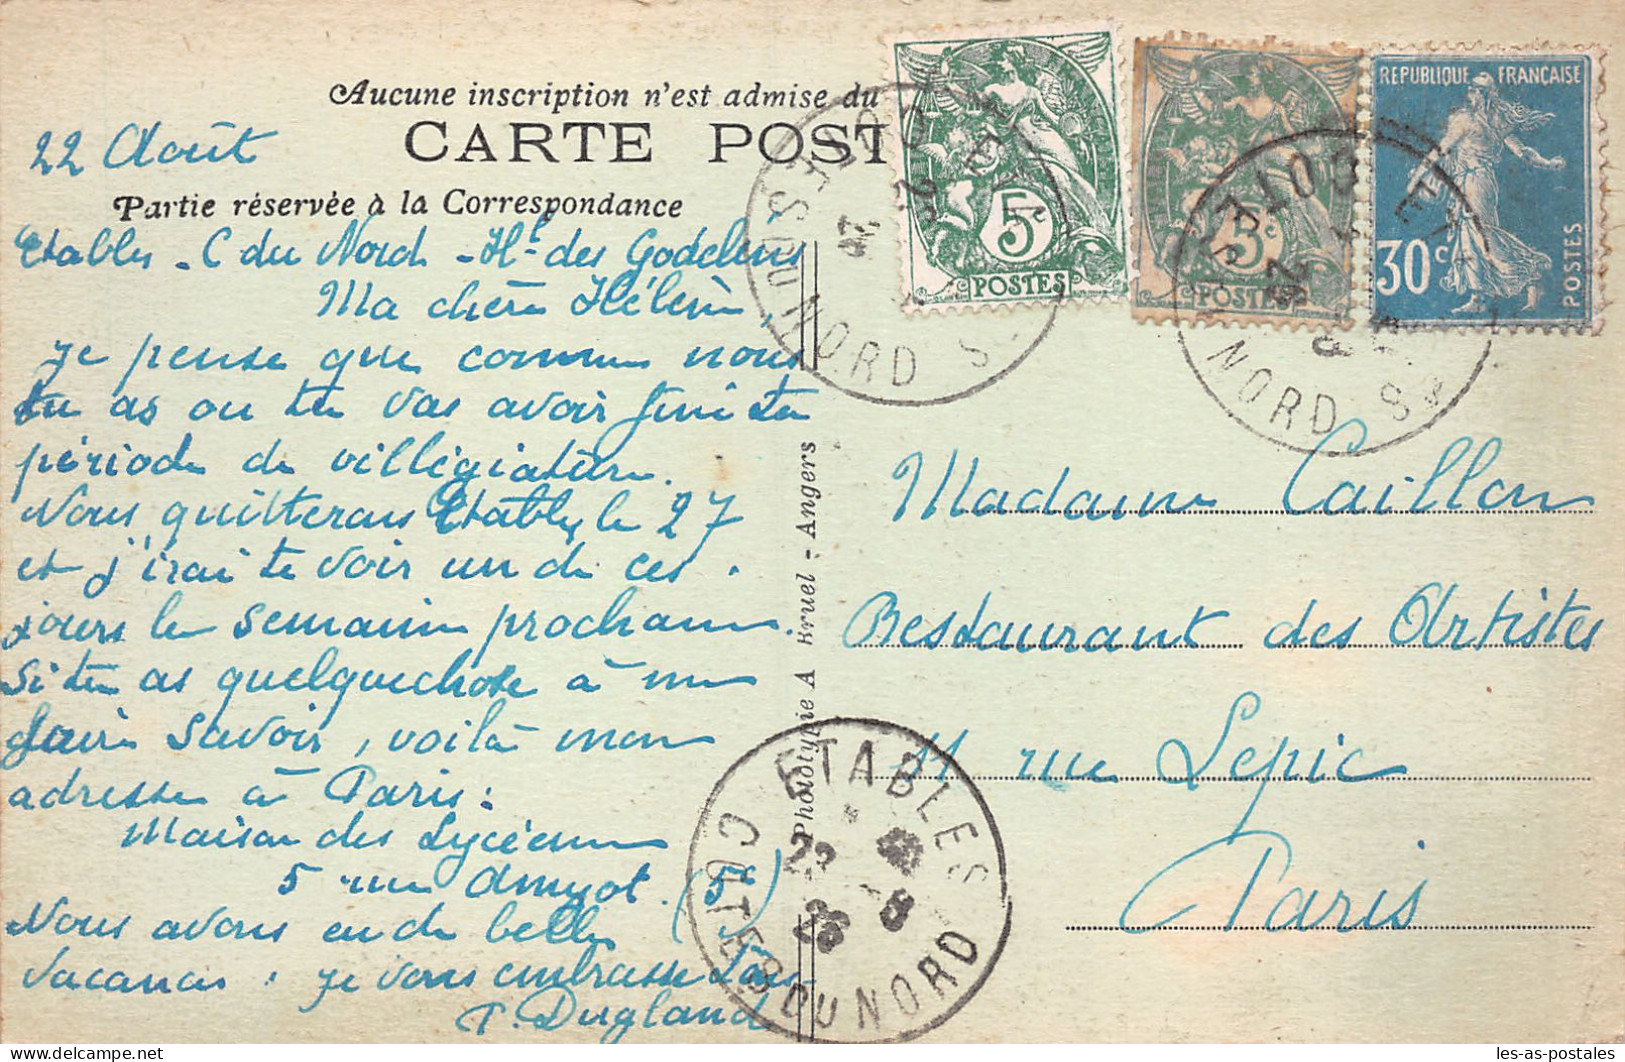 Aucune inscription n'est admise du
CARTE POST
22 Août
Partie réservée à la Correspondance
Etables - C du Nord - Hl des
Ma chère Hélène,
Je pense que comme nous
tu as ou tu vas avoir fini ta
période de villégiature.
Nous quitterons Etables le 27
et j'irai te voir un de ces
jours la semaine prochaine.
Si tu as quelquechose à me
faire savoir, voilà mon
adresse à Paris :
Maison des Lycéennes
5 rue Amyot (5e)
Nous avons eu de belles
vacances : je vous embrasse tous
Photoltypie A Bruel - Angers
Madame Caillon
Restaurant des Artistes
11 rue Lepic
Paris
5c
POSTES
5c
POSTES
REPUBLIQUE FRANÇAISE
30c
POSTES
ES DU NORD
NORD
ETABLES
22 8
26
COTES DU NORD
les-as-postales